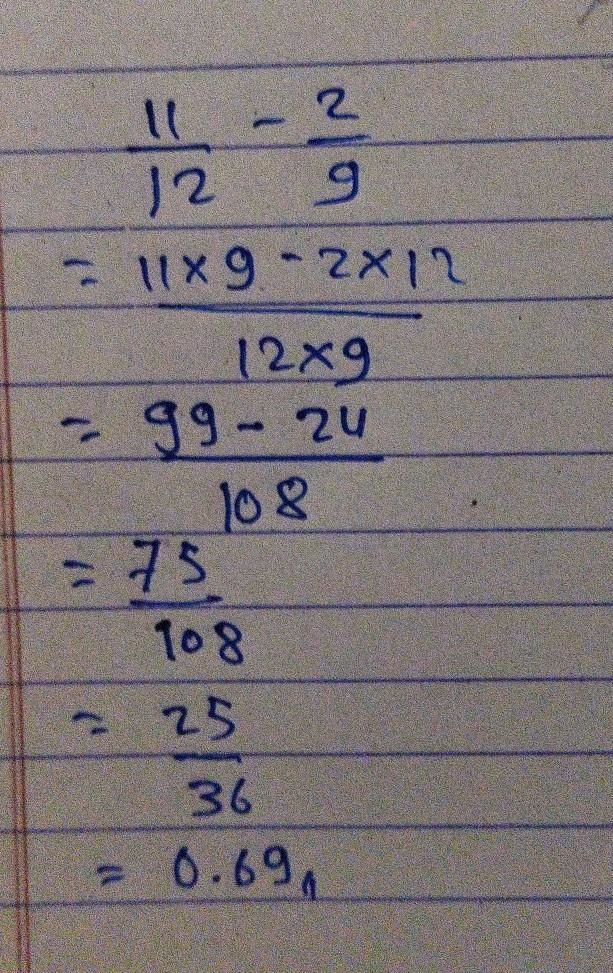 11/12 - 2/9
= 11×9 - 2×12 / 12×9
= 99 - 24 / 108
= 75 / 108
= 25 / 36
= 0.69